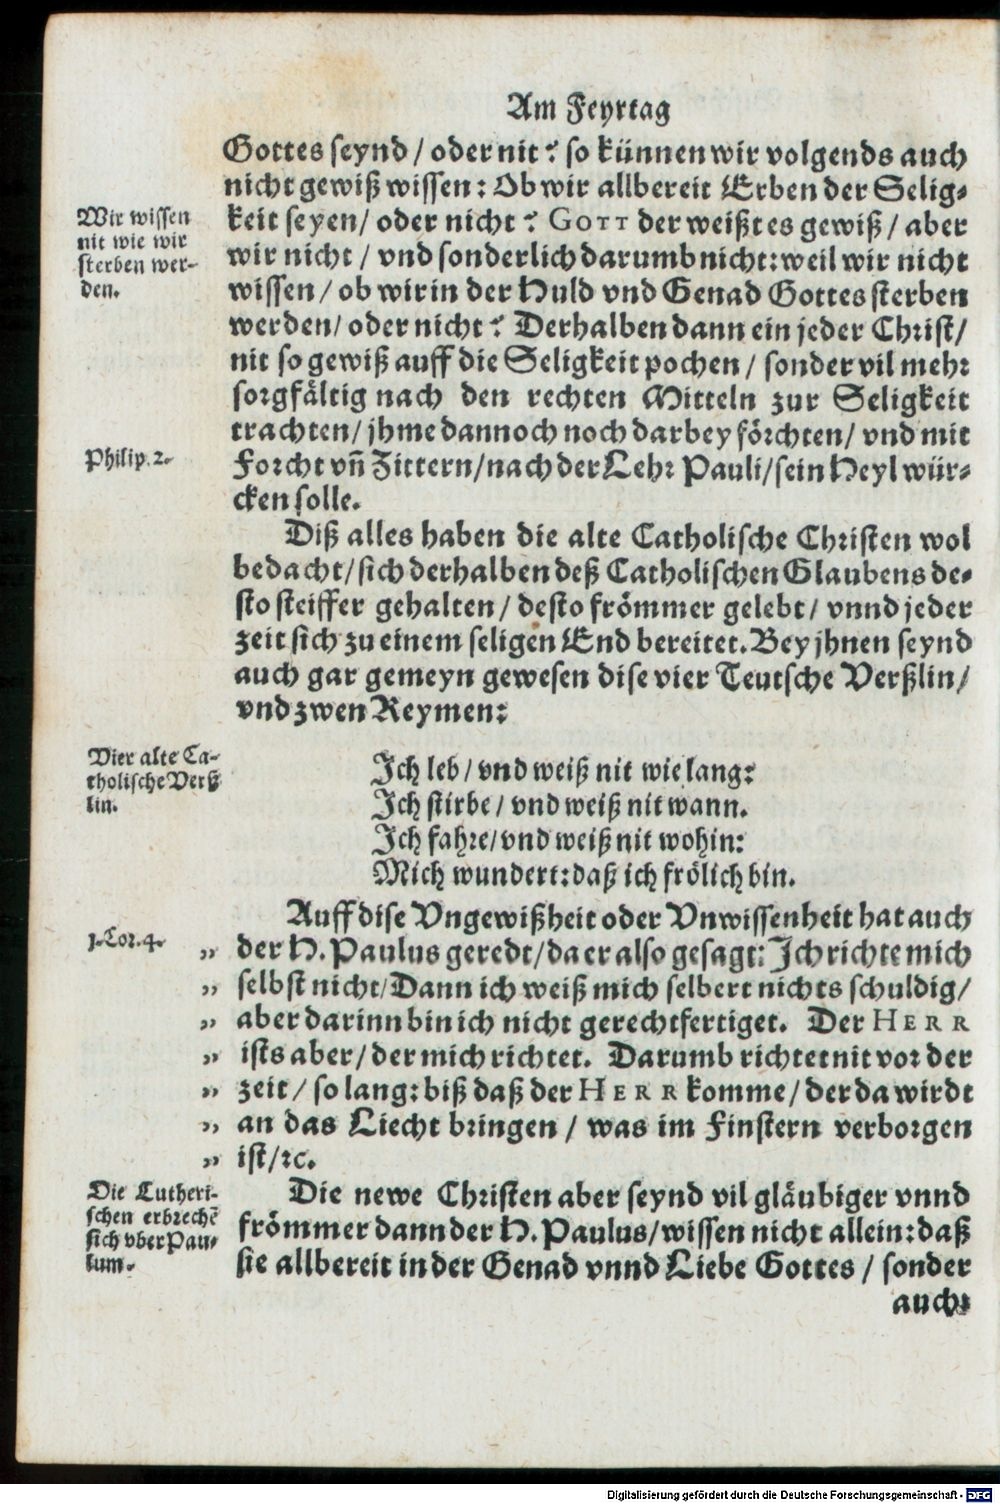 Am Feyrtag
Gottes seynd / oder nit? so künnen wir volgends auch
nicht gewiß wissen: Ob wir allbereit Erben der Selig-
keit seyen / oder nicht? GOTT der weißt es gewiß / aber
wir nicht / vnd sonderlich darumb nicht: weil wir nicht
wissen / ob wir in der Huld vnd Genad Gottes sterben
werden / oder nicht? Derhalben dann ein jeder Christ /
nit so gewiß auff die Seligkeit pochen / sonder vil mehr
sorgfältig nach den rechten Mitteln zur Seligkeit
trachten / jhme dannoch noch darbey förchten / vnd mit
Forcht vñ Zittern / nach der Lehr Pauli / sein Heyl wür-
cken solle.
Wir wissen
nit wie wir
sterben wer-
den.
Philip. 2.
Diß alles haben die alte Catholische Christen wol
bedacht / sich derhalben deß Catholischen Glaubens de-
sto steiffer gehalten / desto frömmer gelebt / vnnd jeder
zeit sich zu einem seligen End bereitet. Bey jhnen seynd
auch gar gemeyn gewesen dise vier Teutsche Verßlin /
vnd zwen Reymen:
Vier alte Ca-
tholische Verß
lin.
Ich leb / vnd weiß nit wie lang:
Ich stirbe / vnd weiß nit wann.
Ich fahre / vnd weiß nit wohin:
Mich wundert: daß ich frölich bin.
Auff dise Vngewißheit oder Vnwissenheit hat auch
1. Cor. 4.
„ der H. Paulus geredt / da er also gesagt: Ich richte mich
„ selbst nicht / Dann ich weiß mich selbert nichts schuldig /
„ aber darinn bin ich nicht gerechtfertiget. Der HERR
„ ists aber / der mich richtet. Darumb richtet nit vor der
„ zeit / so lang: biß daß der HERR komme / der da wirdt
„ an das Liecht bringen / was im Finstern verborgen
„ ist / rc.
Die newe Christen aber seynd vil gläubiger vnnd
frömmer dann der H. Paulus / wissen nicht allein: daß
sie allbereit in der Genad vnnd Liebe Gottes / sonder
auch:
Die Lutheri-
schen erbrechẽ
sich vber Pau-
lum.
Digitalisierung gefördert durch die Deutsche Forschungsgemeinschaft - DFG